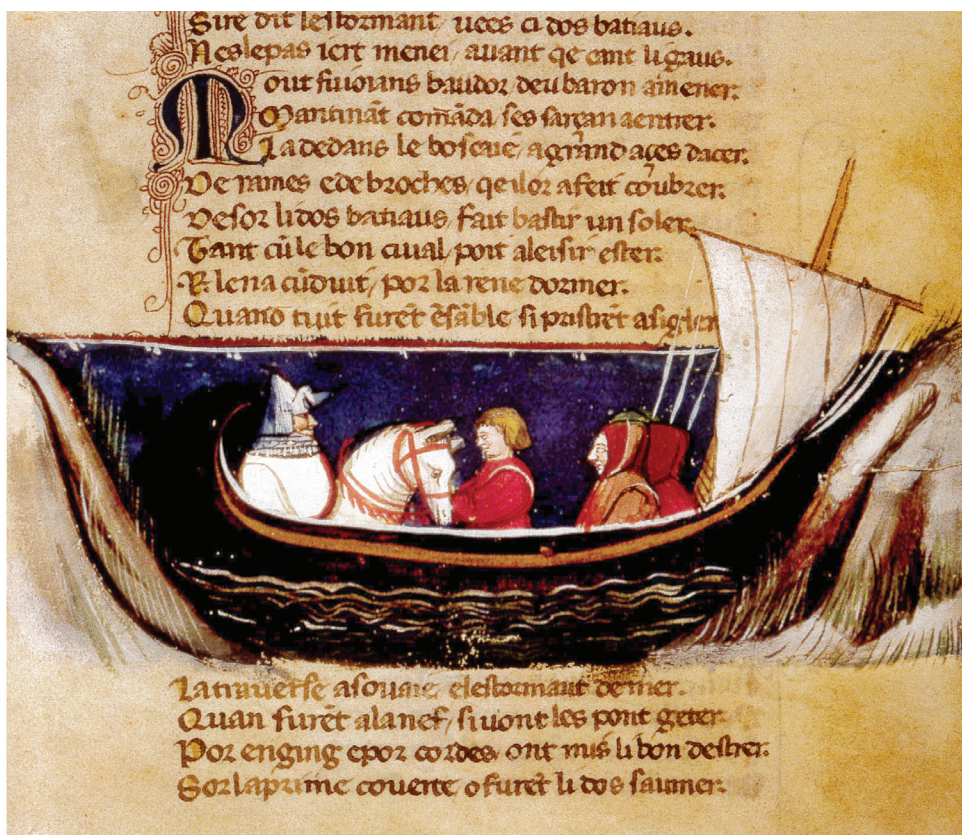 Sire dit lestormant, uees ci dos batiaus.
Neslepas iert menei, auant qe cant li gaus.
Mout fu ioians baudor deu baron amener.
Mantināt comāda ses sarçan aentrer.
La dedans le boscaie, a grand
De rames e de broches, qe ilor a feit
Desor li dos batiaus, fait bastir un soler.
Tant cū le bon ciual, poit a leisir ester.
E lena cūduit, por la rene dorner.
Quand tuit furēt ēsāble si pristrēt a sigler
La trauerse a souaie, e lestormant de mer.
Quan furēt a la nef, si uont les pont geter.
Por enging e por cordes, ont mis li bon destrier.
Sor la prime couerte o furēt li dos saumer.